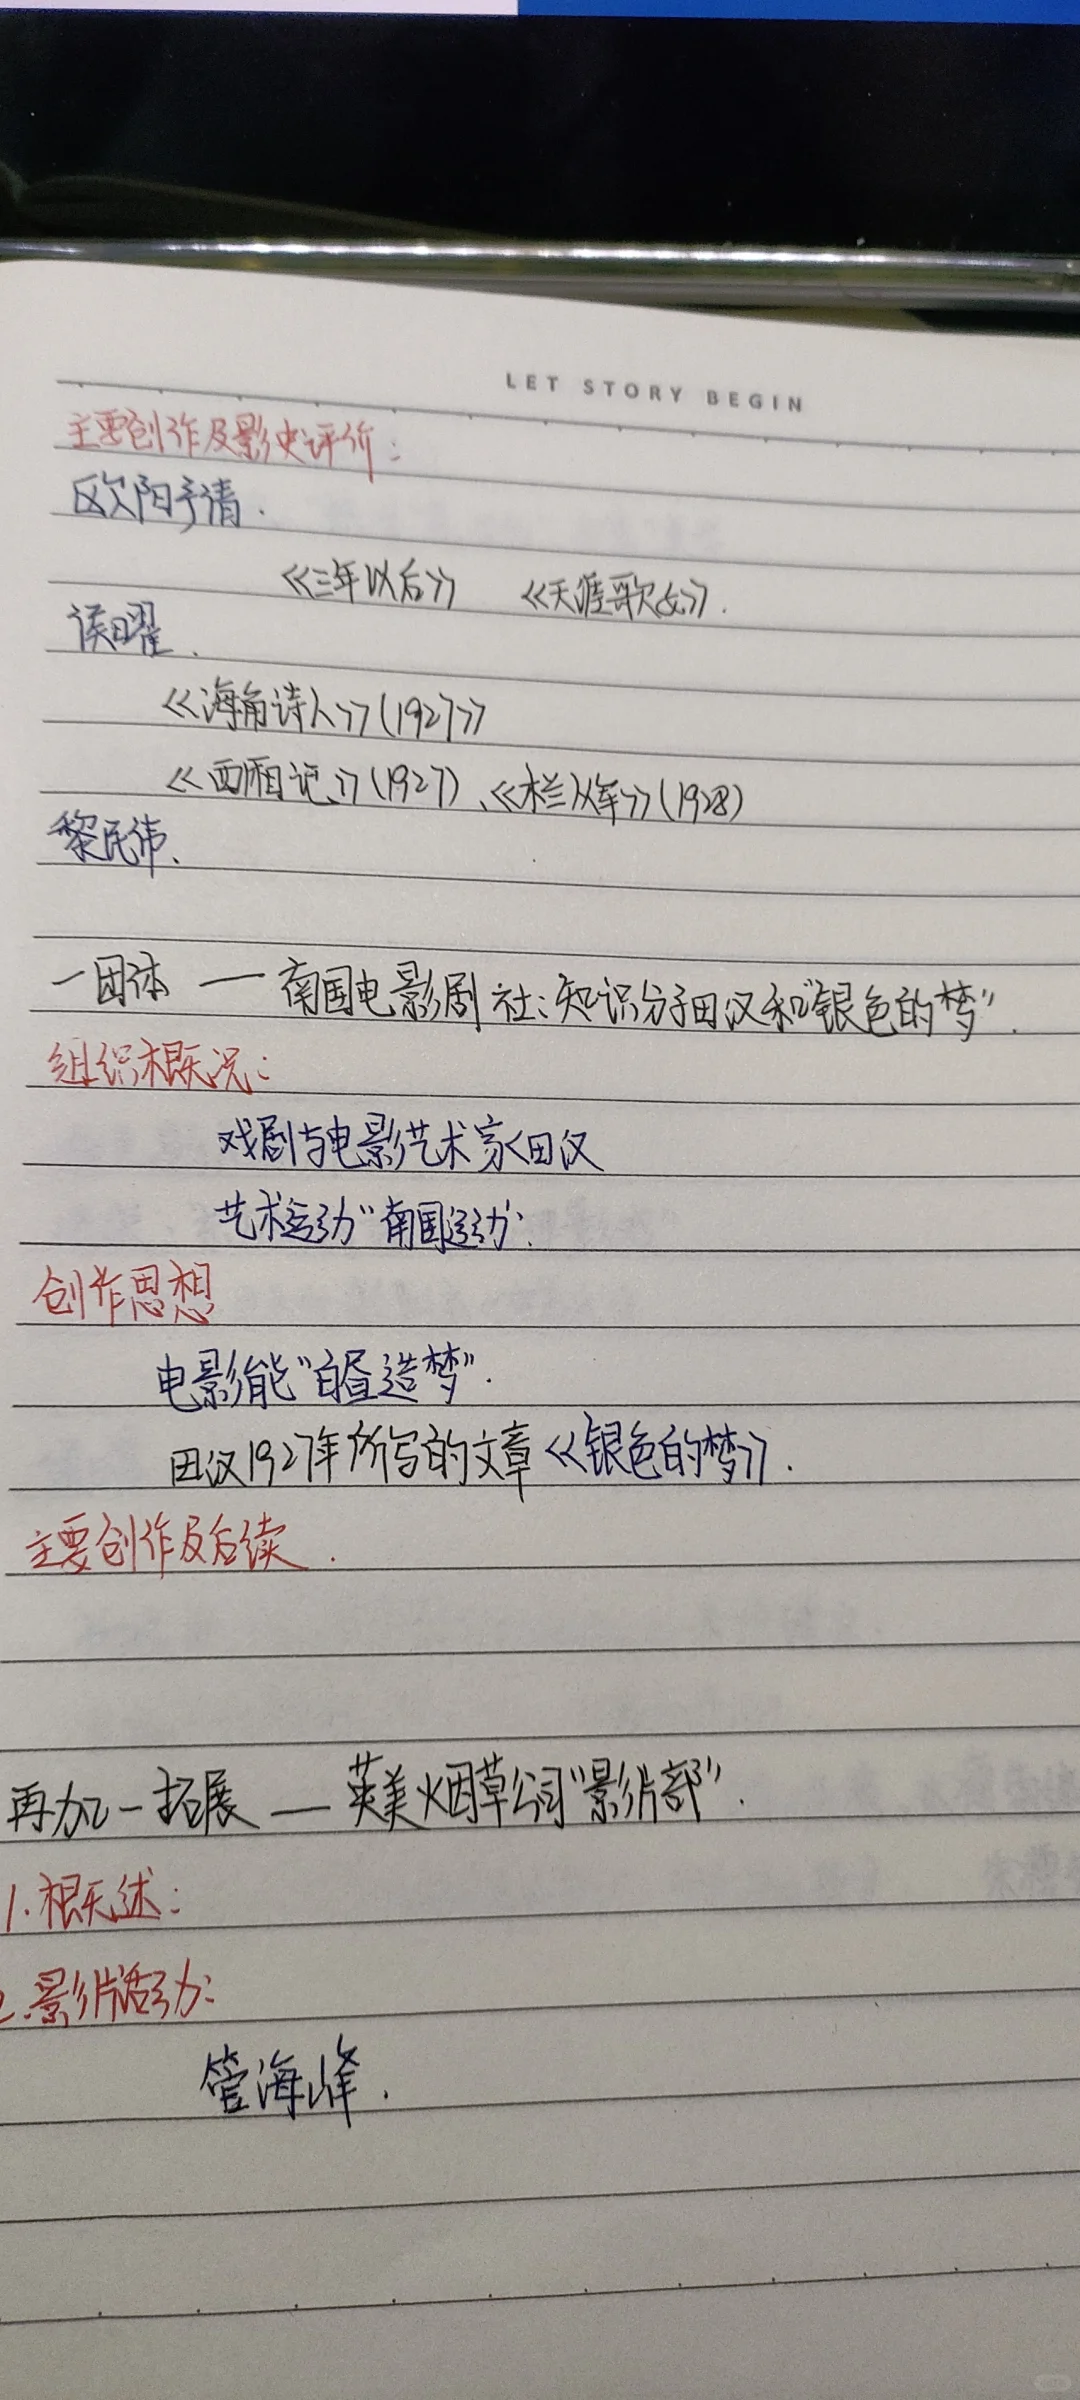 LET STORY BEGIN
主要创作及影史评价：
欧阳予倩.
《三年以后》 《天涯歌女》.
侯曜.
《海角诗人》(1927》
《西厢记》(1927)、《木兰从军》(1928)
黎民伟、
一团体 — 南国电影剧社：知识分子田汉和"银色的梦".
组织概况：
戏剧与电影艺术家田汉
艺术运动"南国运动：
创作思想
电影能"白昼造梦".
田汉1927年所写的文章《银色的梦》.
主要创作及后续.
再加一拓展 — 英美烟草公司"影片部".
1.概述：
2.影片活动：
管海峰.